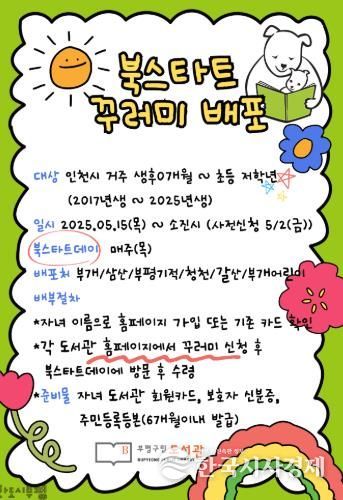 북스타트
꾸러미 배포
대상 인천시 거주 생후0개월 ~ 초등 저학년
(2017년생 ~ 2025년생)
일시 2025.05.15(목) ~ 소진시 (사전신청 5/2(금))
북스타트데이 매주(목)
배포처 부개/삼산/부평기적/청천/갈산/부개어린이
배부절차
*자녀 이름으로 홈페이지 가입 또는 기존 카드 확인
*각 도서관 홈페이지에서 꾸러미 신청 후
북스타트데이에 방문 후 수령
*준비물 자녀 도서관 회원카드, 보호자 신분증,
주민등록등본(6개월이내 발급)
B 부평구립 도서관
한국시사경제